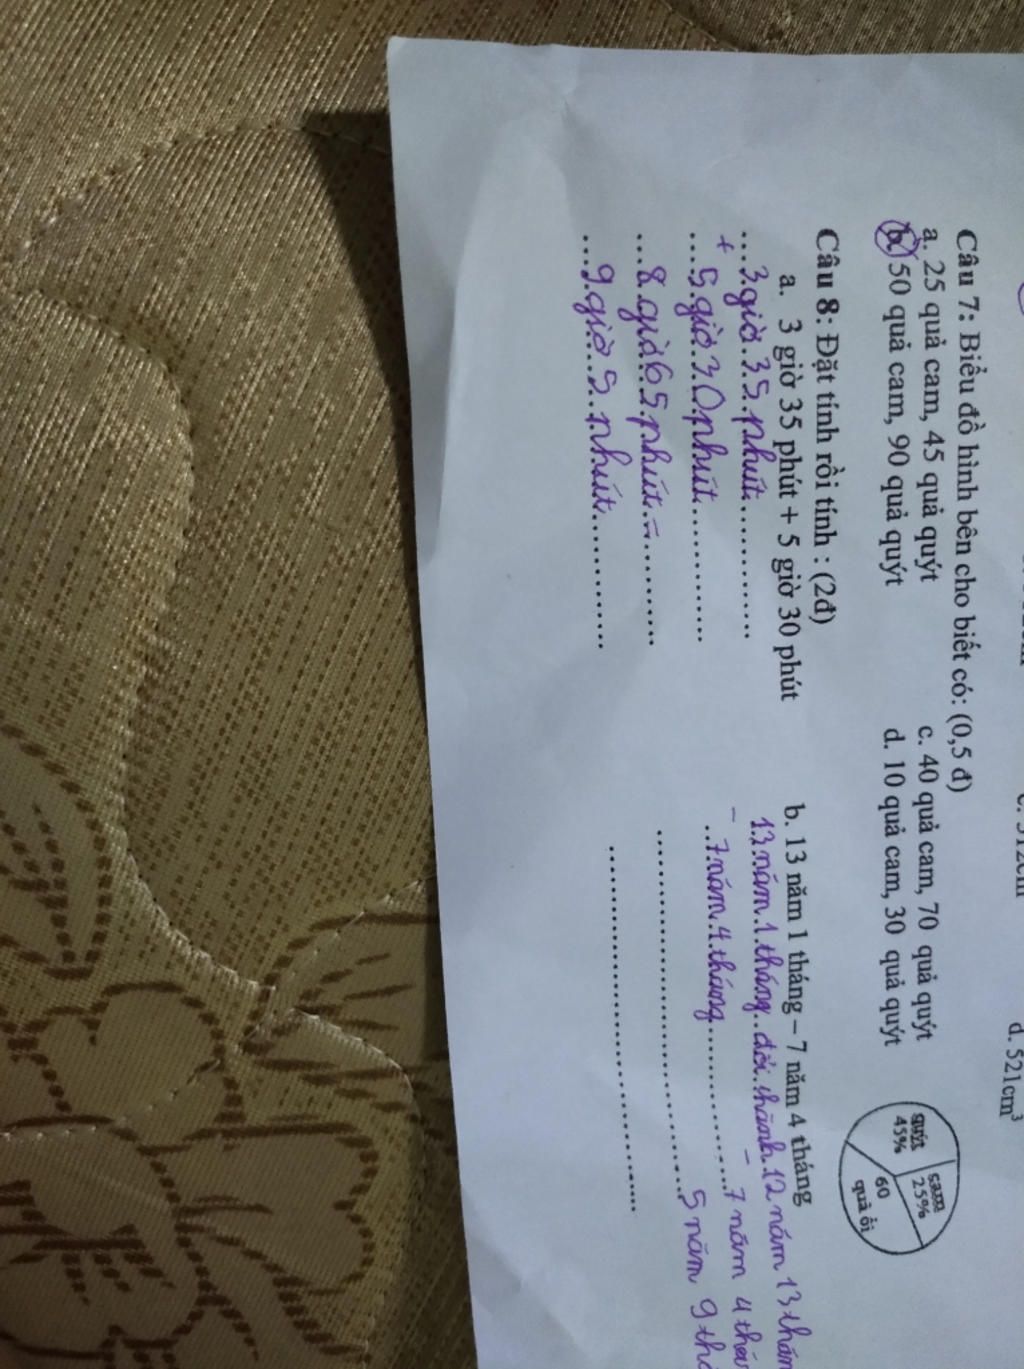 d. 521cm³
Câu 7: Biểu đồ hình bên cho biết có: (0,5 đ)
a. 25 quả cam, 45 quả quýt
c. 40 quả cam, 70 quả quýt
b. 50 quả cam, 90 quả quýt
d. 10 quả cam, 30 quả quýt
cam
25%
quýt
45%
60
quả ổi
Câu 8: Đặt tính rồi tính : (2đ)
a. 3 giờ 35 phút + 5 giờ 30 phút
3 giờ 35 phút
+
5 giờ 30 phút
8 giờ 65 phút =
9 giờ 5 phút
b. 13 năm 1 tháng – 7 năm 4 tháng
13 năm 1 tháng đổi thành 12 năm 13
-
7 năm 4 tháng
-
7 năm 4
5 năm 9